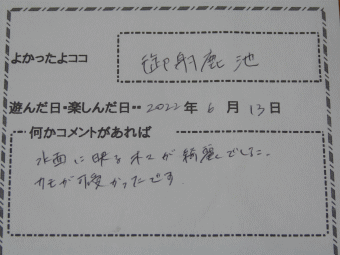 よかったよココ
御射鹿池
遊んだ日・楽しんだ日・・2022年6月13日
何かコメントがあれば
水面に映る木々が綺麗でした。
カモが可愛かったです